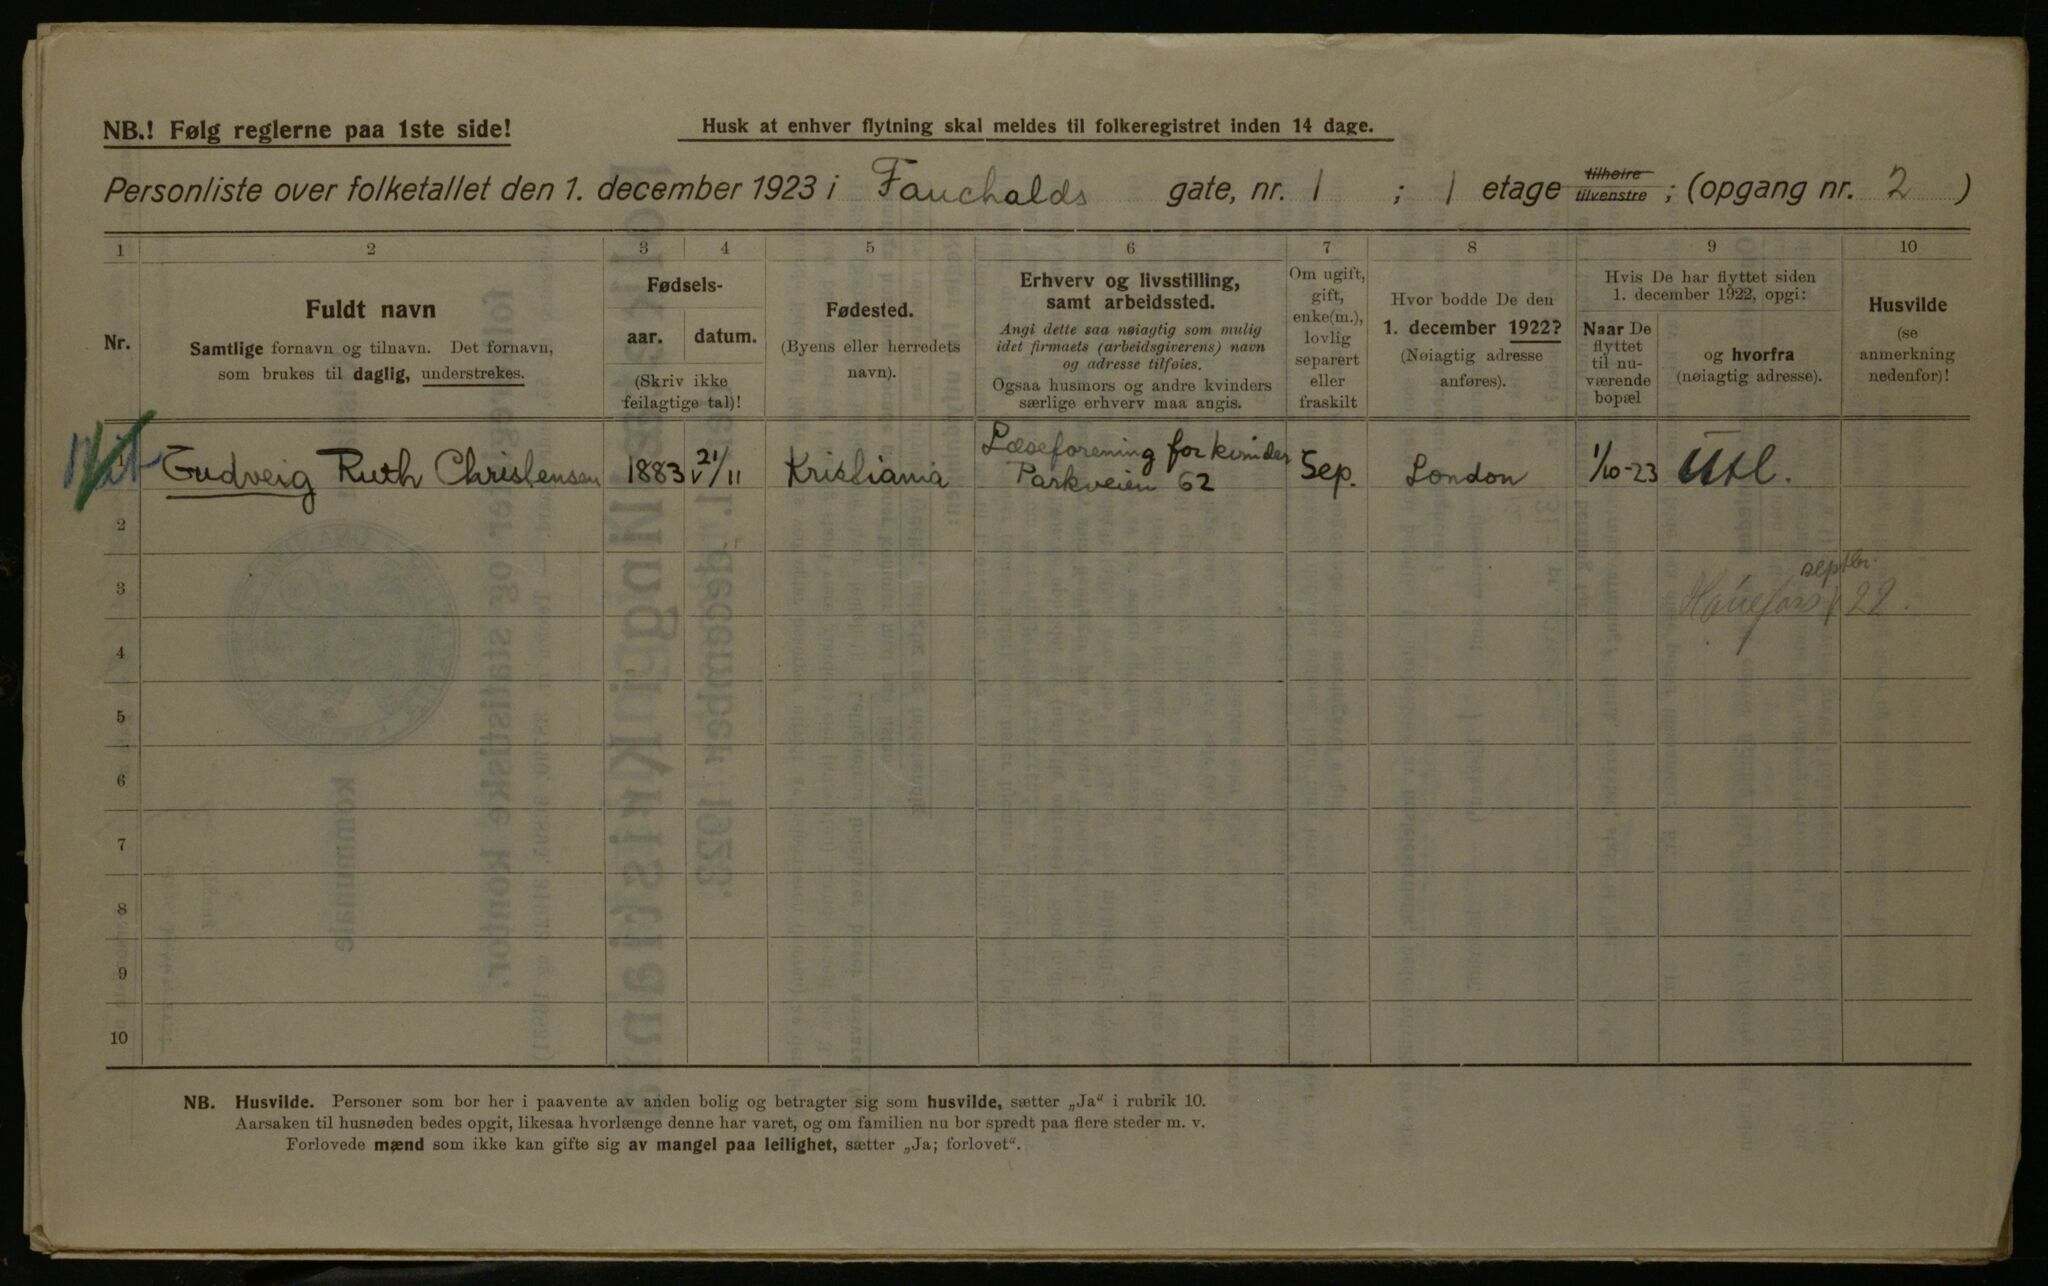 NB.! Følg reglerne paa 1ste side!
Husk at enhver flytning skal meldes til folkeregistret inden 14 dage.
Personliste over folketallet den 1. december 1923 i Fauchalds gate, nr. 1 ; 1 etage tilhøire tilvenstre ; (opgang nr. 2 )
1 2 3 4 5 6 7 8 9 10
Nr.
Fuldt navn
Samtlige fornavn og tilnavn. Det fornavn,
som brukes til daglig, understrekes.
Fødsels-
aar. datum.
(Skriv ikke
feilagtige tal)!
Fødested.
(Byens eller herredets
navn).
Erhverv og livsstilling,
samt arbeidssted.
Angi dette saa nøiagtig som mulig
idet firmaets (arbeidsgiverens) navn
og adresse tilføies.
Ogsaa husmors og andre kvinders
særlige erhverv maa angis.
Om ugift,
gift,
enke(m.),
lovlig
separert
eller
fraskilt
Hvor bodde De den
1. december 1922?
(Nøiagtig adresse
anføres).
Hvis De har flyttet siden
1. december 1922, opgi:
Naar De
flyttet
til nu-
værende
bopæl
og hvorfra
(nøiagtig adresse).
Husvilde
(se
anmerkning
nedenfor)!
Gudveig Ruth Christensen 1883 21/11 Kristiania Læseforening for kvinder Sep. London 1/10-23 Utl.
Parkveien 62
2
septbr.
3 22.
4
5
6
7
8
9
10
NB. Husvilde. Personer som bor her i paavente av anden bolig og betragter sig som husvilde, sætter „Ja" i rubrik 10.
Aarsaken til husnøden bedes opgit, likesaa hvorlænge denne har varet, og om familien nu bor spredt paa flere steder m. v.
Forlovede mænd som ikke kan gifte sig av mangel paa leilighet, sætter „Ja; forlovet".